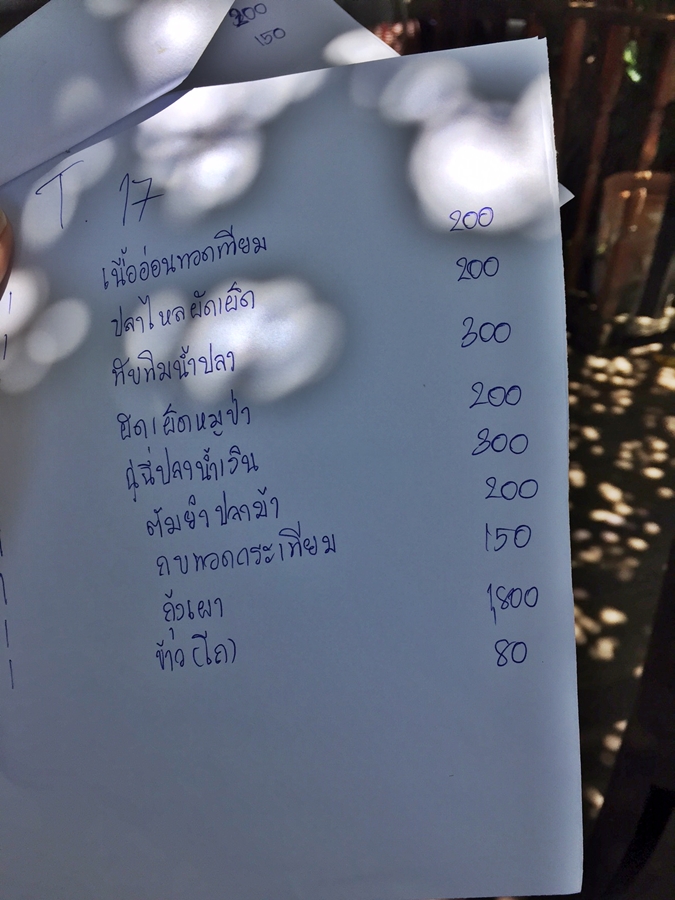 200
150
T. 17
เนื้ออ่อนทอดเทียม 200
ปลาไหลผัดเผ็ด 200
ทับทิมน้ำปลา 300
ผัดเผ็ดหมูป่า 200
ฉู่ฉี่ปลาน้ำเงิน 300
ต้มยำปลาม้า 200
กบทอดกระเทียม 150
กุ้งเผา 1,800
ข้าว (โถ) 80